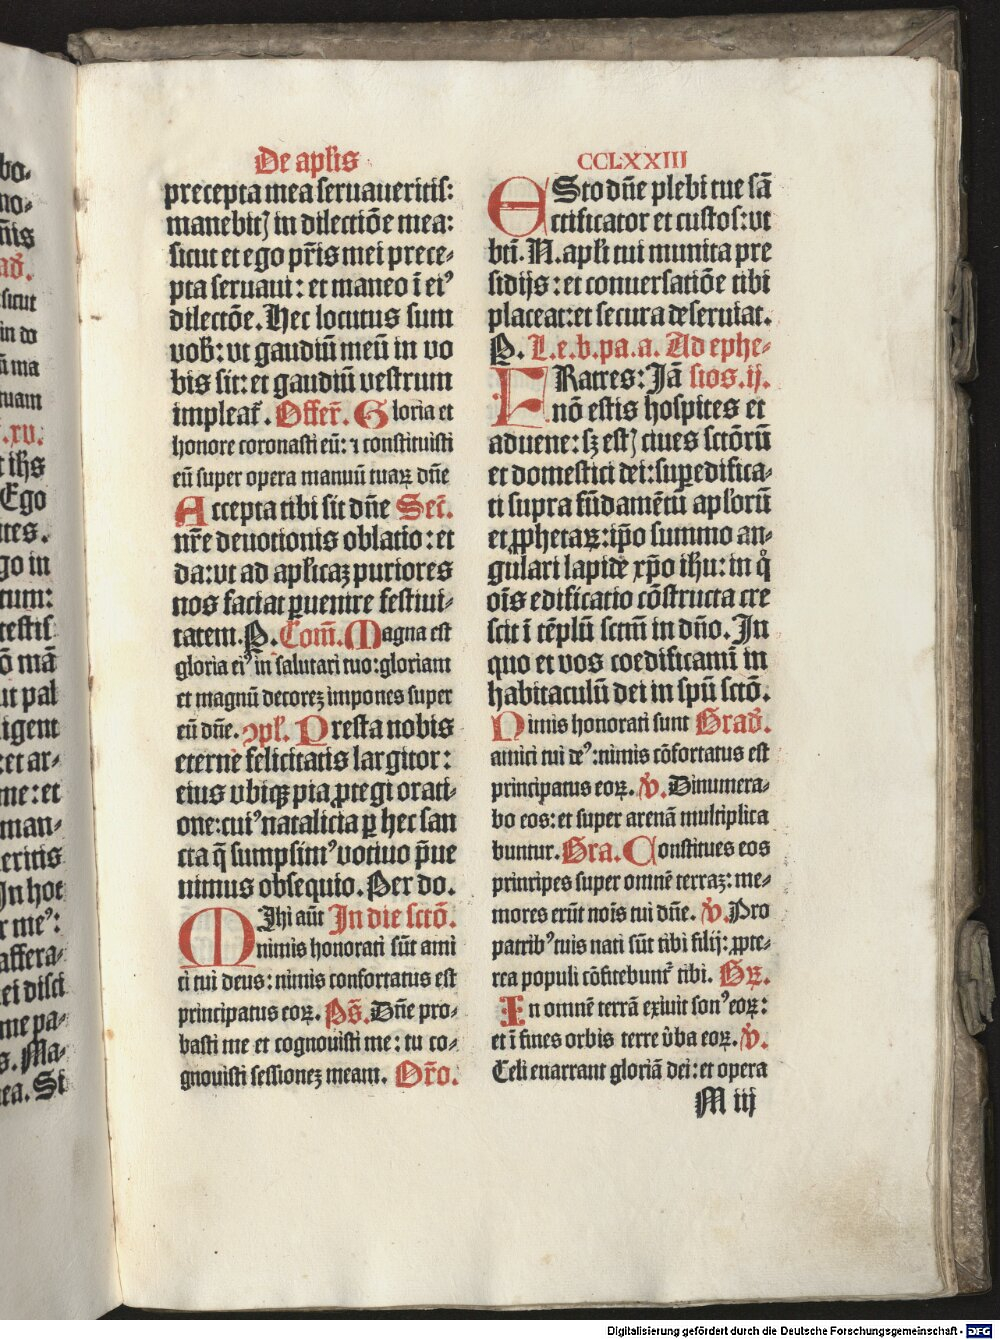 De apl̄is
CCLXXIII
precepta mea seruaueritis:
manebitꝭ in dilectiōe mea:
sicut et ego pr̄is mei prece-
pta seruaui: et maneo ī eiꝰ
dilectōe. Hec locutus sum
vob̄: vt gaudiū meū in vo
bis sit: et gaudiū vestrum
impleat̄. Offer̄. Gloria et
honore coronasti eū: ⁊ constituisti
eū super opera manuū tuaꝝ dn̄e
Accepta tibi sit dn̄e Secr̄.
nr̄e deuotionis oblatio: et
da: vt ad aplicaꝫ puriores
nos faciat ꝑuenire festiui-
tatem. P. Com̄. Magna est
gloria eiꝰ in salutari tuo: gloriam
et magnū decoreꝫ impones super
eū dn̄e. ꝯpl̄. Presta nobis
eterne felicitatis largitor:
eius vbiqꝫ pia ꝓtegi orati-
one: cuiꝰ natalicia ꝑ hec san
cta q̄ sumpsimꝰ votiuo p̄ue
nimus obsequio. Per do.
MIhi aūt In die sctō.
nimis honorati sūt ami
ci tui deus: nimis confortatus est
principatus eoꝝ. Ps̄. Dn̄e pro-
basti me et cognouisti me: tu co-
gnouisti sessioneꝫ meam. Or̄o.
ESto dn̄e plebi tue sā
ctificator et custos: vt
bt̄i. N. apl̄i tui munita pre
sidijs: et conuersatiōe tibi
placeat: et secura deseruiat.
P. L. e. b. pa. a. Ad ephe-
FRatres: Jā sios. ij.
nō estis hospites et
aduene: sꝫ estꝭ ciues sctōrū
et domestici dei: suꝑedifica-
ti supra fūdamētū apl̄orū
et ꝓphetaꝝ: ip̄o summo an-
gulari lapide xp̄o ih̄u: in qͦ
oīs edificatio cōstructa cre
scit ī tēplū sctm̄ in dn̄o. In
quo et vos coedificamī in
habitaculū dei in spū sctō.
Nimis honorati sunt Grad̄.
amici tui deꝰ: nimis cōfortatus est
principatus eoꝝ. V̄. Dinumera-
bo eos: et super arenā multiplica
buntur. Gra. Constitues eos
principes super omnē terraꝫ: me-
mores erūt nōis tui dn̄e. V̄. Pro
patribꝰ tuis nati sūt tibi filij: ꝓpte-
rea populi cōfitebunt̄ tibi. Gꝝ.
In omnē terrā exiuit sonꝰ eoꝝ:
et ī fines orbis terre v̄ba eoꝝ. V̄.
Celi enarrant gloriā dei: et opera
M iij
Digitalisierung gefördert durch die Deutsche Forschungsgemeinschaft - DFG